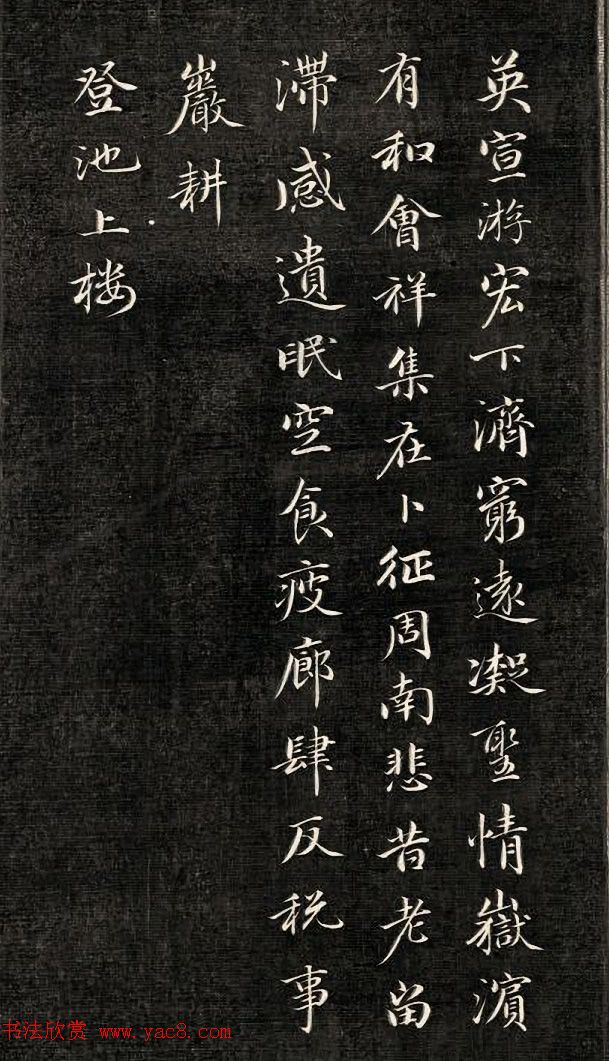 英宣游宏下濟窮遠凝聖情嶽濱
有和會祥集在卜征周南悲昔老留
滯感遺眠空食疲廊肆反税事
巖耕
登池上楼
书法欣赏 www.yac8.com